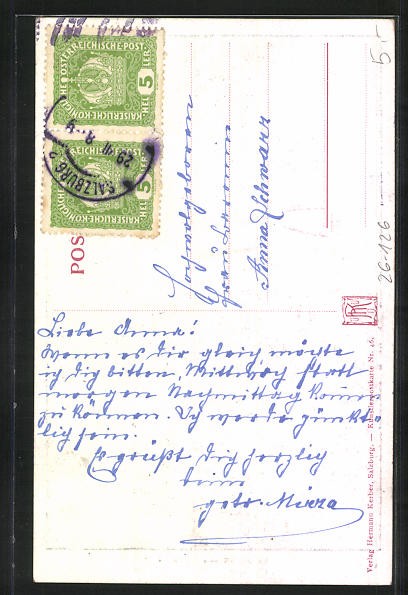 5.-
KAISERLICHE·KÖNIGLICHE ÖSTERREICHISCHE·POST
5 HELLER
KAISERLICHE·KÖNIGLICHE
5 HEL
SALZBURG 2
29. VII
9
POS
Hochwohlgeboren
Frau
Anna Schwarz
26-126
Liebe Anna!
Wenn es dir gleich, möchte
ich dich bitten, Mittwoch statt
morgen Nachmittag kommen
zu können. Ich werde pünkt-
lich sein.
Es grüßt dich herzlich
deine
getr. Mirza
Verlag Hermann Kerber, Salzburg. — Künstlerpostkarte Nr. 46.